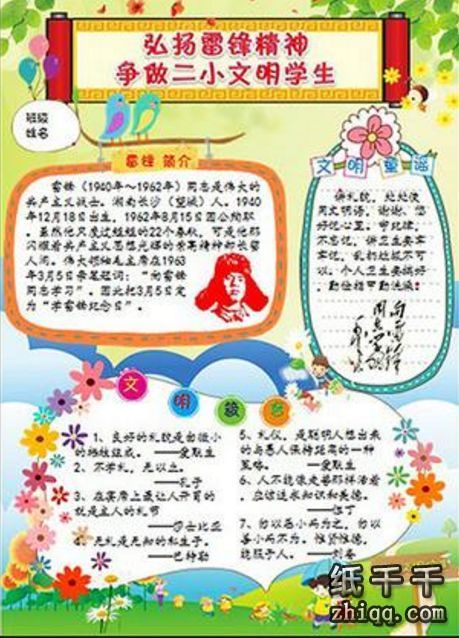 弘扬雷锋精神
争做二小文明学生
班级
姓名
雷锋 简介
雷锋（1940年～1962年）同志是伟大的
共产主义战士。湖南长沙（望城）人。1940
年12月18日出生，1962年8月15日因公殉职
。虽然他只度过短短的22个春秋，可是他那
闪耀着共产主义思想光辉的崇高精神却长留
人间。伟大领袖毛主席在1963
年3月5日亲笔题词：“向雷锋
同志学习”。因此把3月5日定
为“学雷锋纪念日”。
文明童谣
讲礼貌，处处使
用文明语，谢谢、您
好记心里。守纪律，
不忘记，讲卫生要牢
记，乱扔垃圾不可
以。个人卫生要搞好，
勤俭指甲勤洗澡！
向雷锋
同志学习
毛泽东
文明
1、良好的礼貌是由微小
的牺牲组成。——爱默生
2、不学礼，无以立。
——孔子
3、在宴席上最让人开胃的
就是主人的礼节
——莎士比亚
4、无礼是无知的私生子。
——巴特勒
5、礼仪，是聪明人想出来
的与愚人保持距离的一种
策略。——爱默生
6、人不能像走兽那样活着
，应该追求知识和美德。
——但丁
7、勿以恶小而为之，勿以
善小而不为。惟贤惟德，
能服于人。——刘备
纸千千
zhiqq.com